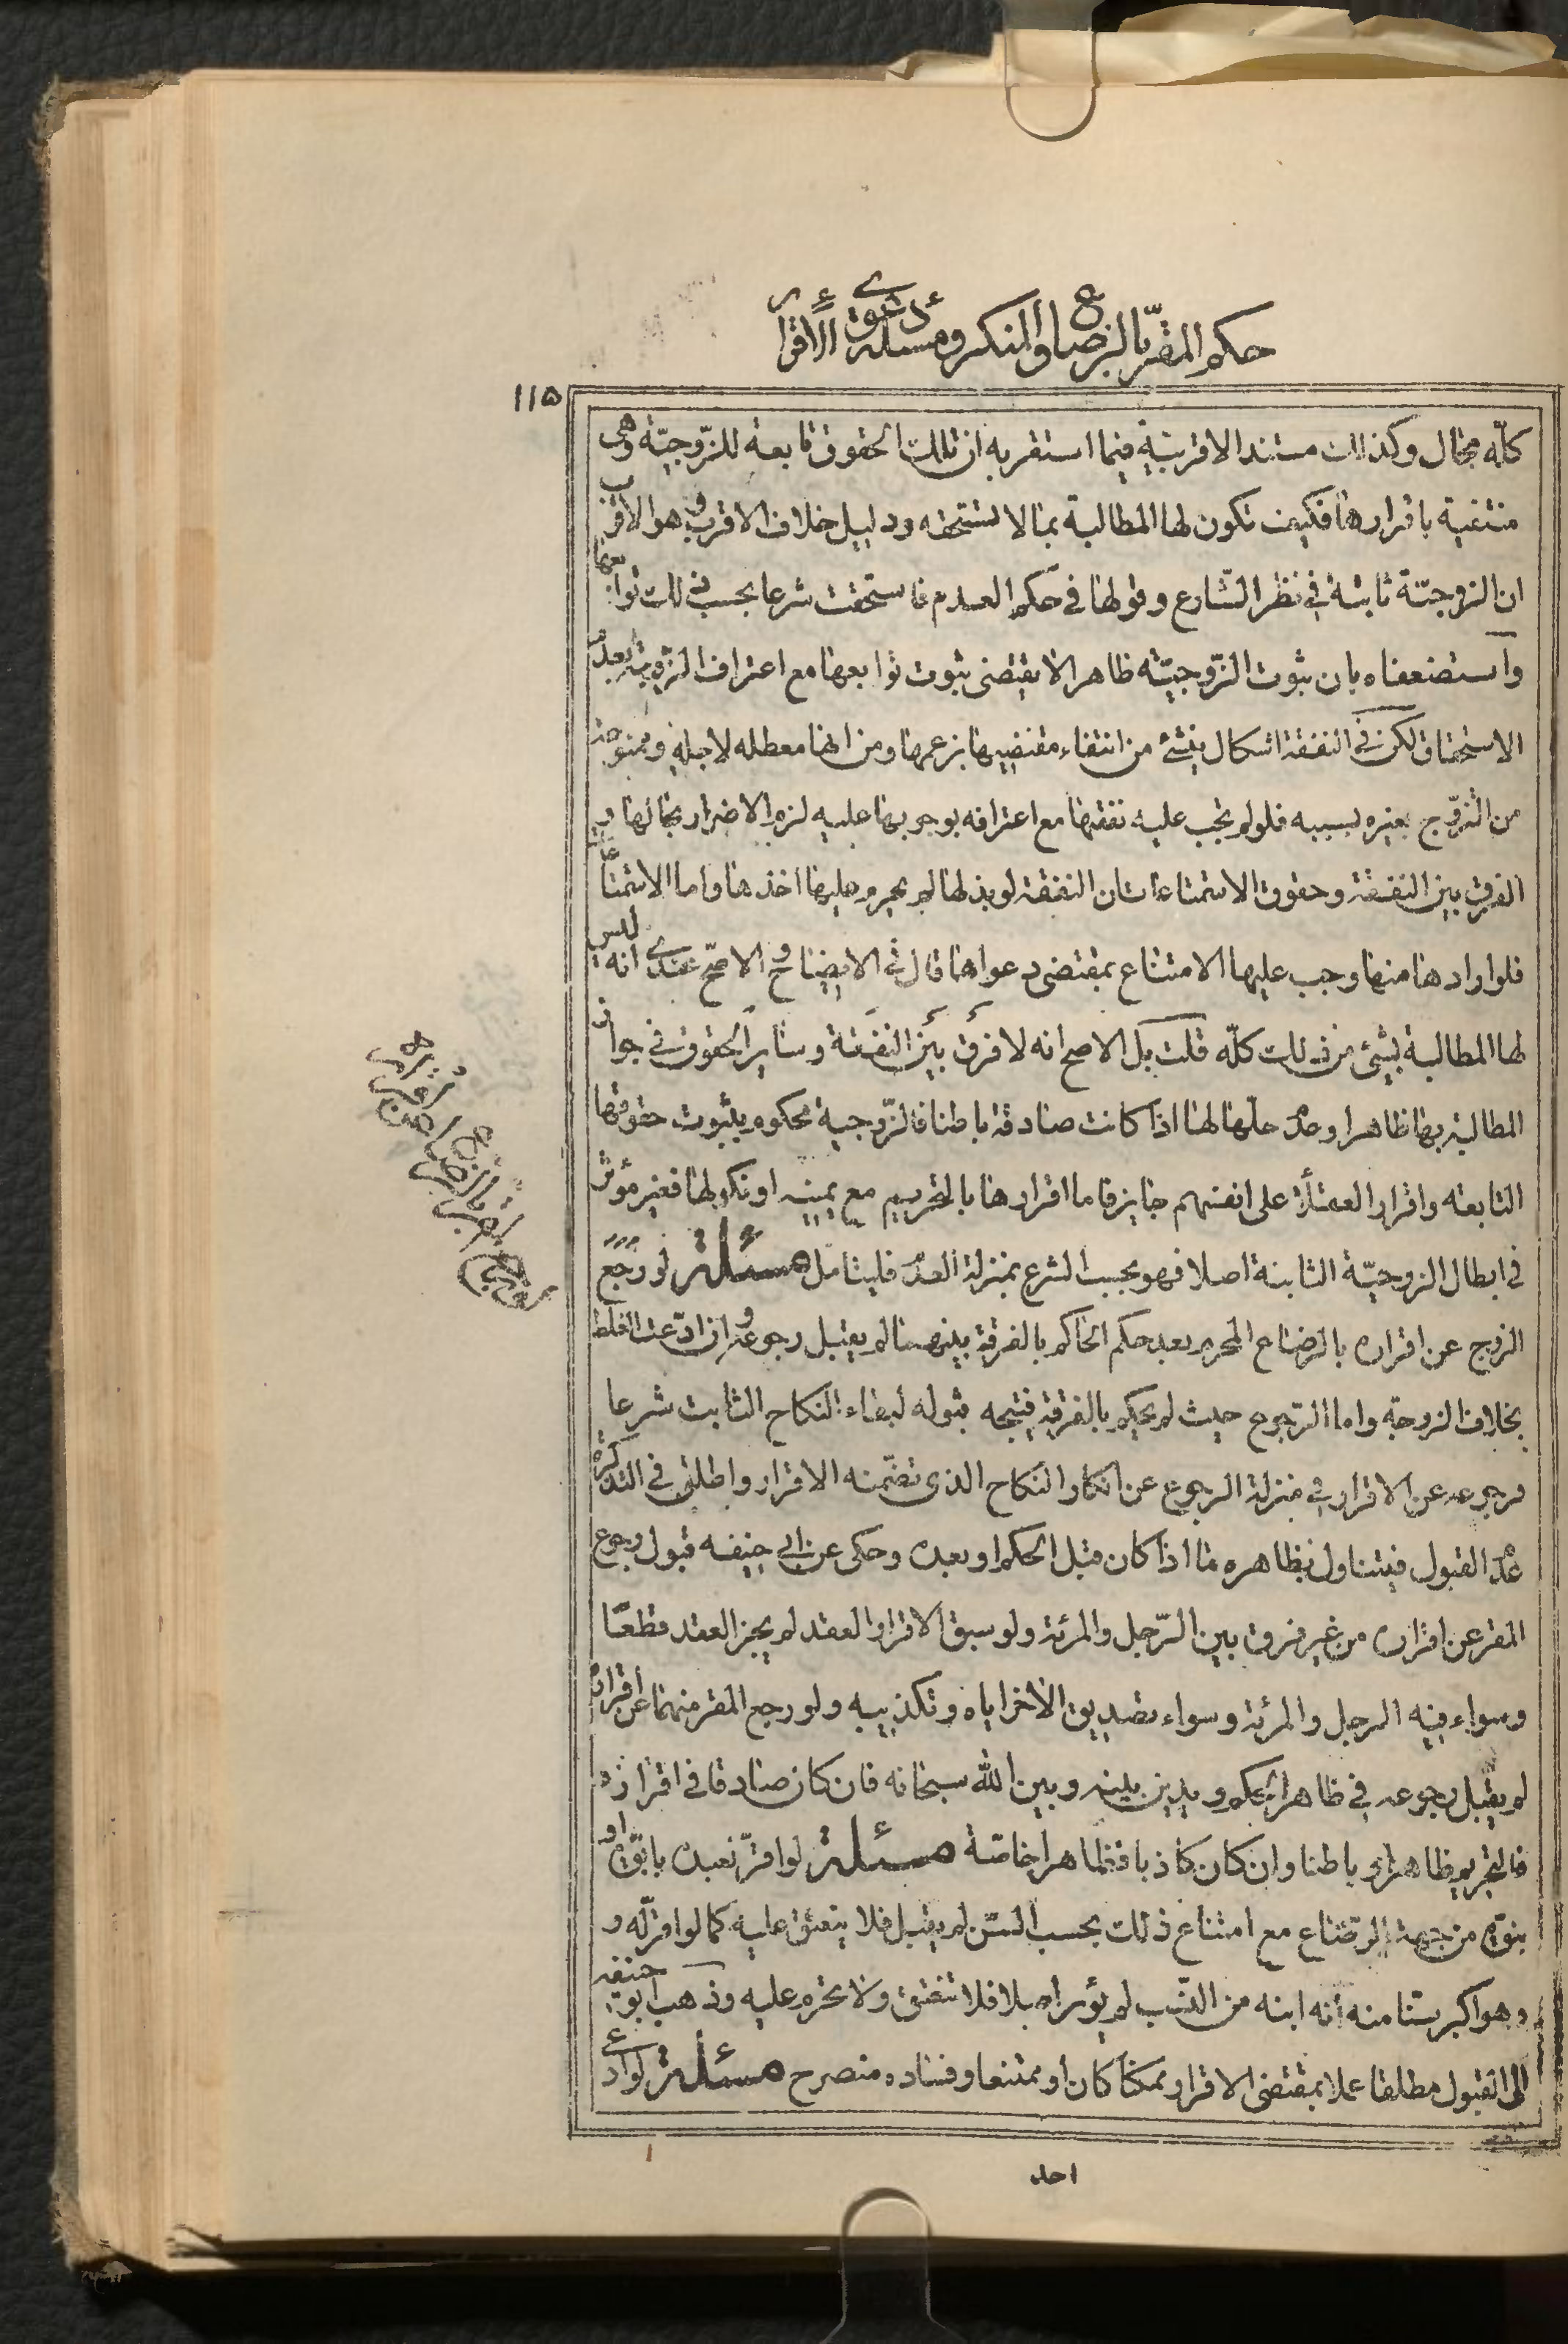 حكم المقرّ بالرضاع والمنكر ومسئلة دعوى الاقرار
١١٥
كلّه مجال وكذلك مستند الاقربيّة فيما استقربه ان تلك الحقوق تابعة للزّوجيّة وهى
منتفية باقرارها فكيف تكون لها المطالبة بما لا تستحقه ودليل خلاف الاقرب وهو الاقرب
ان الزوجيّة ثابتة في نظر الشّارع وقولها في حكم العدم فاستحقت شرعا بحسب ذلك توابعها
واستضعفناه بان ثبوت الزّوجيّته ظاهرا لا يقتضى ثبوت توابعها مع اعتراف الزوجة بعدم
الاستحقاق لكن في النفقة اشكال ينشئ من انتفاء مقتضيها بزعمها ومن انها معطله لاجله وممنوعة
من التزوّج بغيره بسببه فلو لم تجب عليه نفقتها مع اعترافه بوجوبها عليه لزم الاضرار بحالها و
الفرق بين النفقة وحقوق الاستمتاعات ان النفقة لو بذلها لم يحرم عليها اخذها واما الاستمتاعات
فلو ارادها منها وجب عليها الامتناع بمقتضى دعواها قال في الايضاح والاصحّ عندى انه ليس
لها المطالبة بشئ من ذلك كلّه قلت بل الاصح انه لا فرق بين النفقة وسائر الحقوق في جواز
المطالبة بها ظاهرا وعدم حلّها لها اذا كانت صادقة باطنا فالزّوجية محكوم بثبوت حقوقها
التابعه واقرار العقلاء على انفسهم جايز فاما اقرارها بالتحريم مع يمينه او نكولها فغير مؤثر
في ابطال الزوجيّة الثابتة اصلا فهو بحسب الشرع بمنزلة العدم فليتامل مسئلة لو رجع
الزوج عن اقراره بالرضاع المحرم بعد حكم الحاكم بالفرقة بينهما لم يقبل رجوعه وان ادّعت الغلط
بخلاف الزوجة واما الرّجوع حيث لم يحكم بالفرقة فيتجه قبوله لبقاء النكاح الثابت شرعا
فرجوعه عن الاقرار في منزلة الرجوع عن انكار النكاح الذى تضمّنه الاقرار واطلق في التذكرة
عدم القبول فيتناول بظاهره ما اذا كان قبل الحكم او بعده وحكى عن ابى حنيفه قبول رجوع
المقر عن اقراره من غير فرق بين الرّجل والمرئة ولو سبق الاقرار العقد لم يجز العقد قطعا
وسواء فيه الرجل والمرئة وسواء تصديق الاخر اياه وتكذيبه ولو رجع المقر منهما عن اقراره
لم يقبل رجوعه في ظاهر الحكم ويدين بينه وبين الله سبحانه فان كان صادقا في اقراره
فالتحريم ظاهرا وباطنا وان كان كاذبا فظاهرا خاصّة مسئلة لو اقرّ بعبده بابوّة او
بنوّة من جهة الرّضاع مع امتناع ذلك بحسب السّن لم يقبل فلا ينعتق عليه كما لو اقرّ له و
هو اكبر سنا منه انه ابنه من النّسب لم يؤثر اصلا فلا تنعتق ولا يحرم عليه وذهب ابو حنيفة
الى القبول مطلقا عملا بمقتضى الاقرار ممكنا كان او ممتنعا وفساده متصرح مسئلة لو ادعى
احد